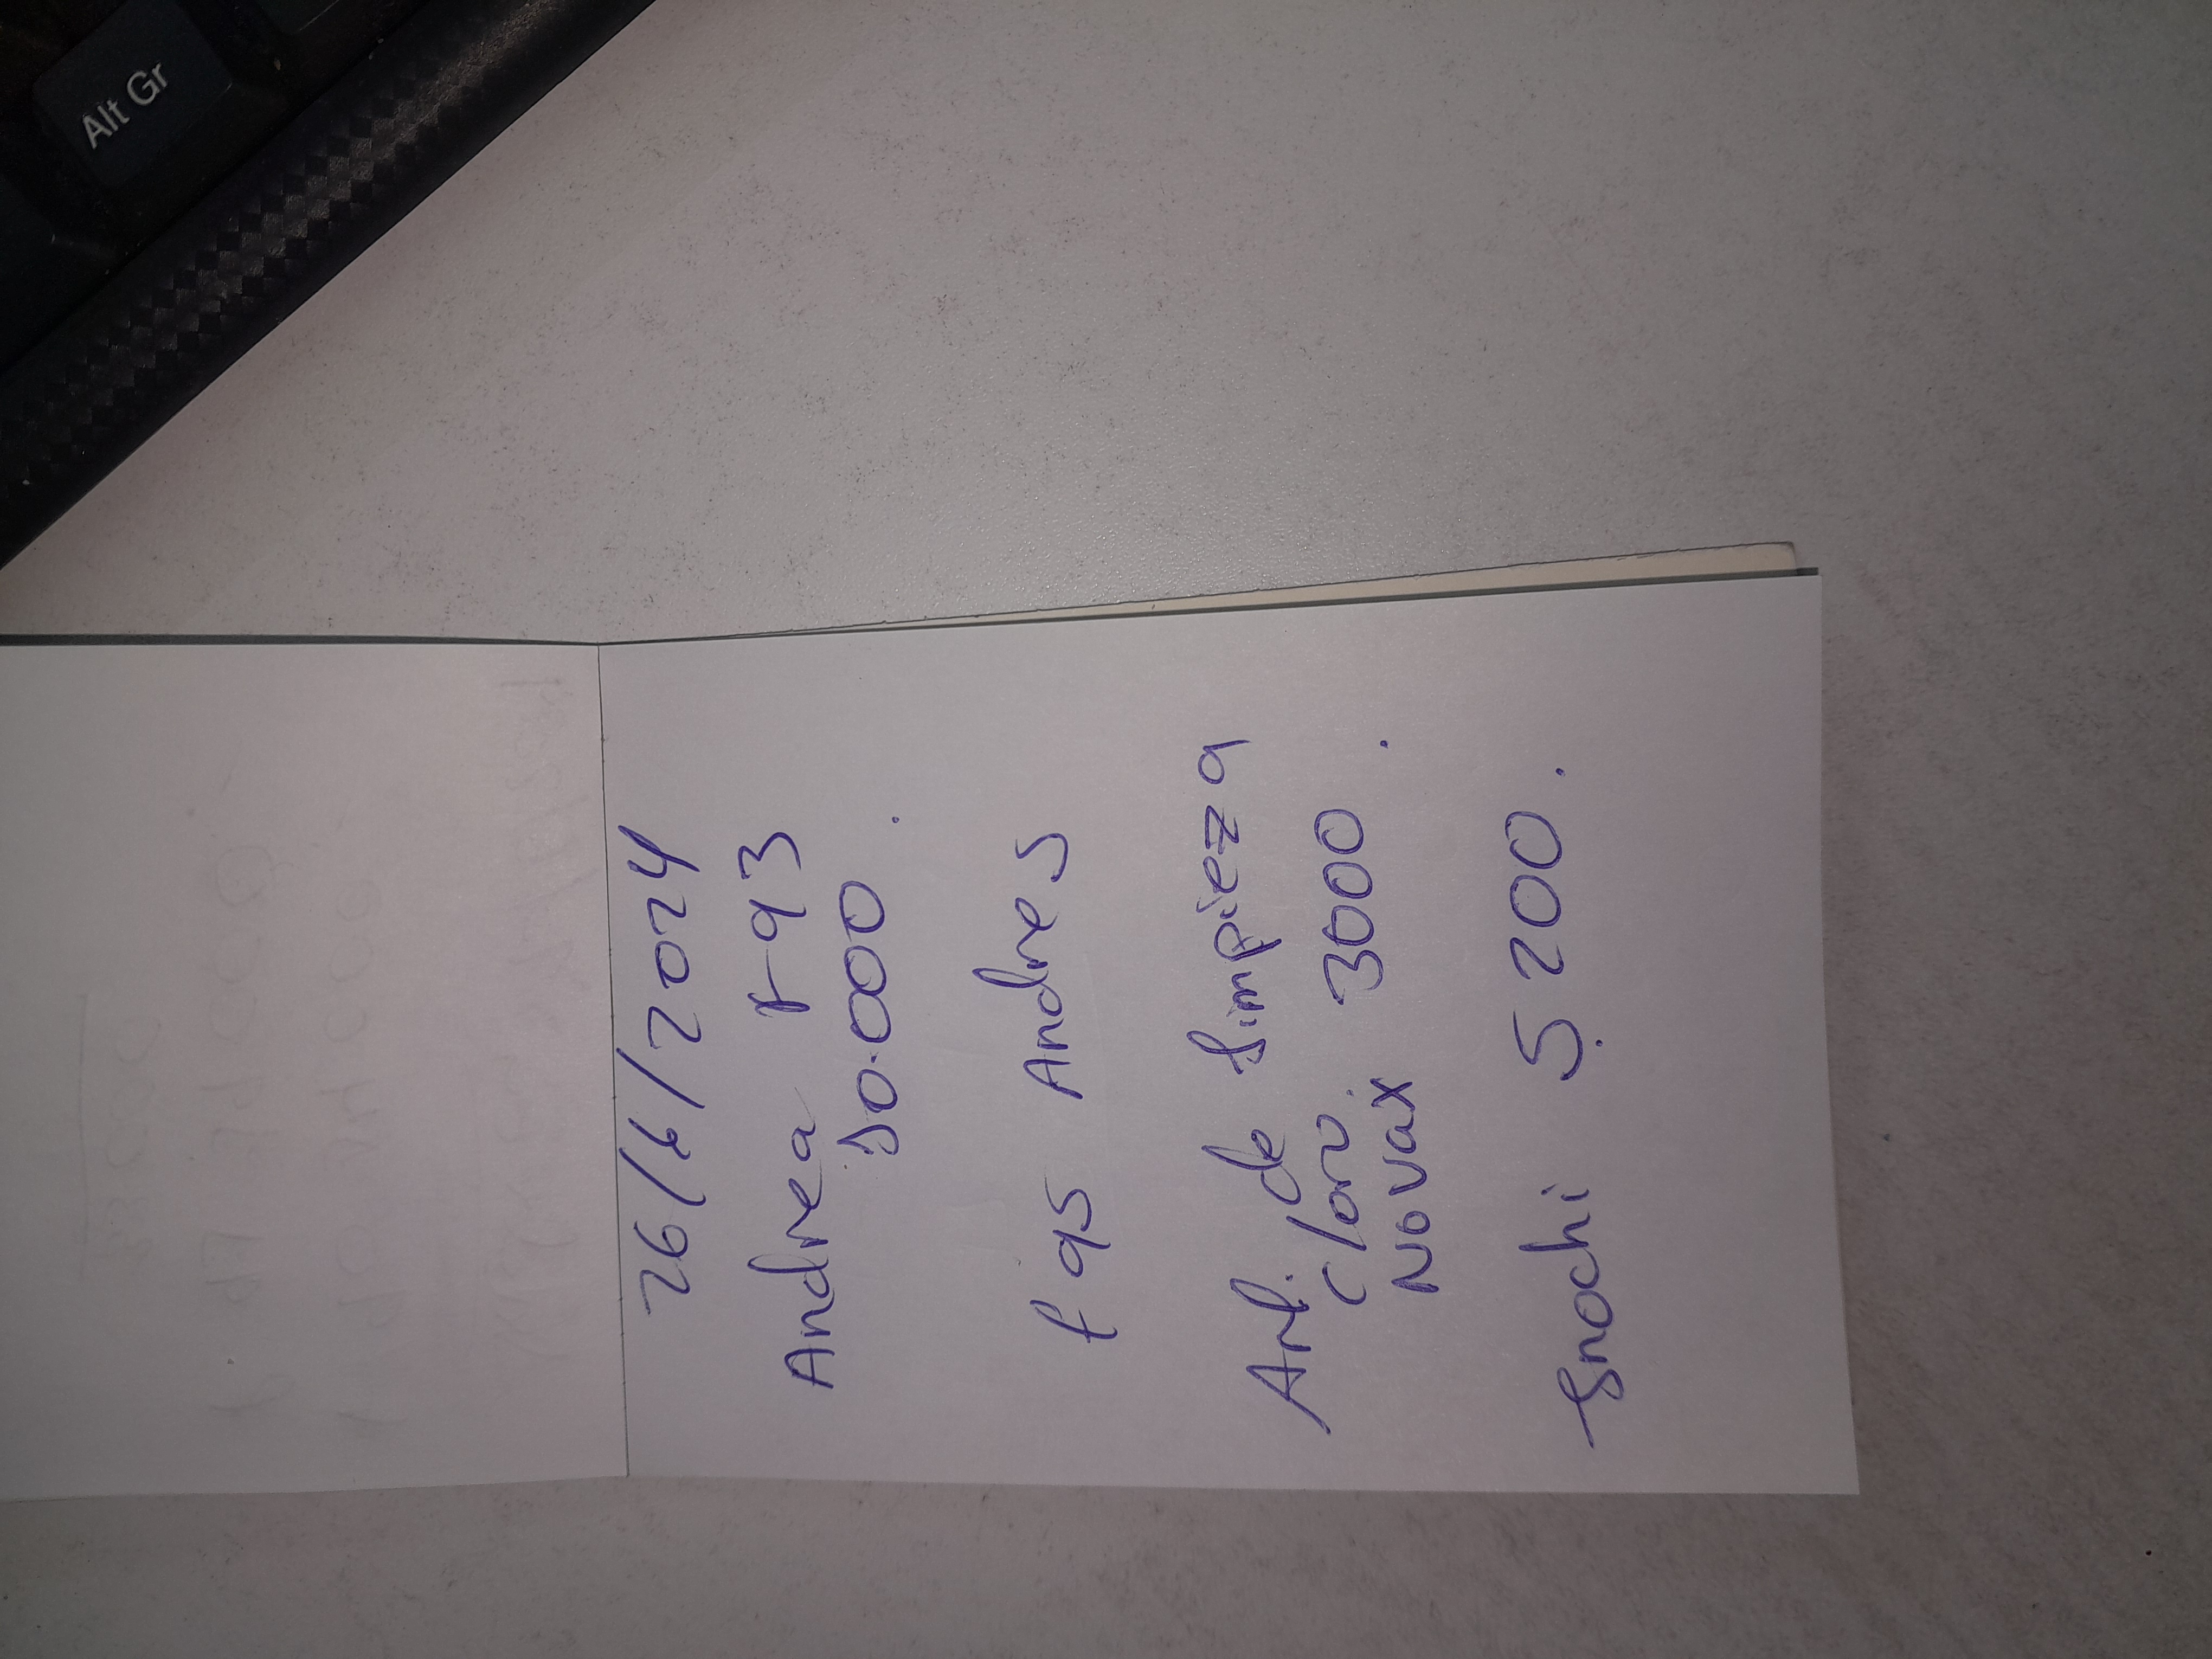 Alt Gr
26/6/2024
Andrea F93
10.000.
F95 Andres
Art. de limpieza
cloro.
Novax 3000.
5200.